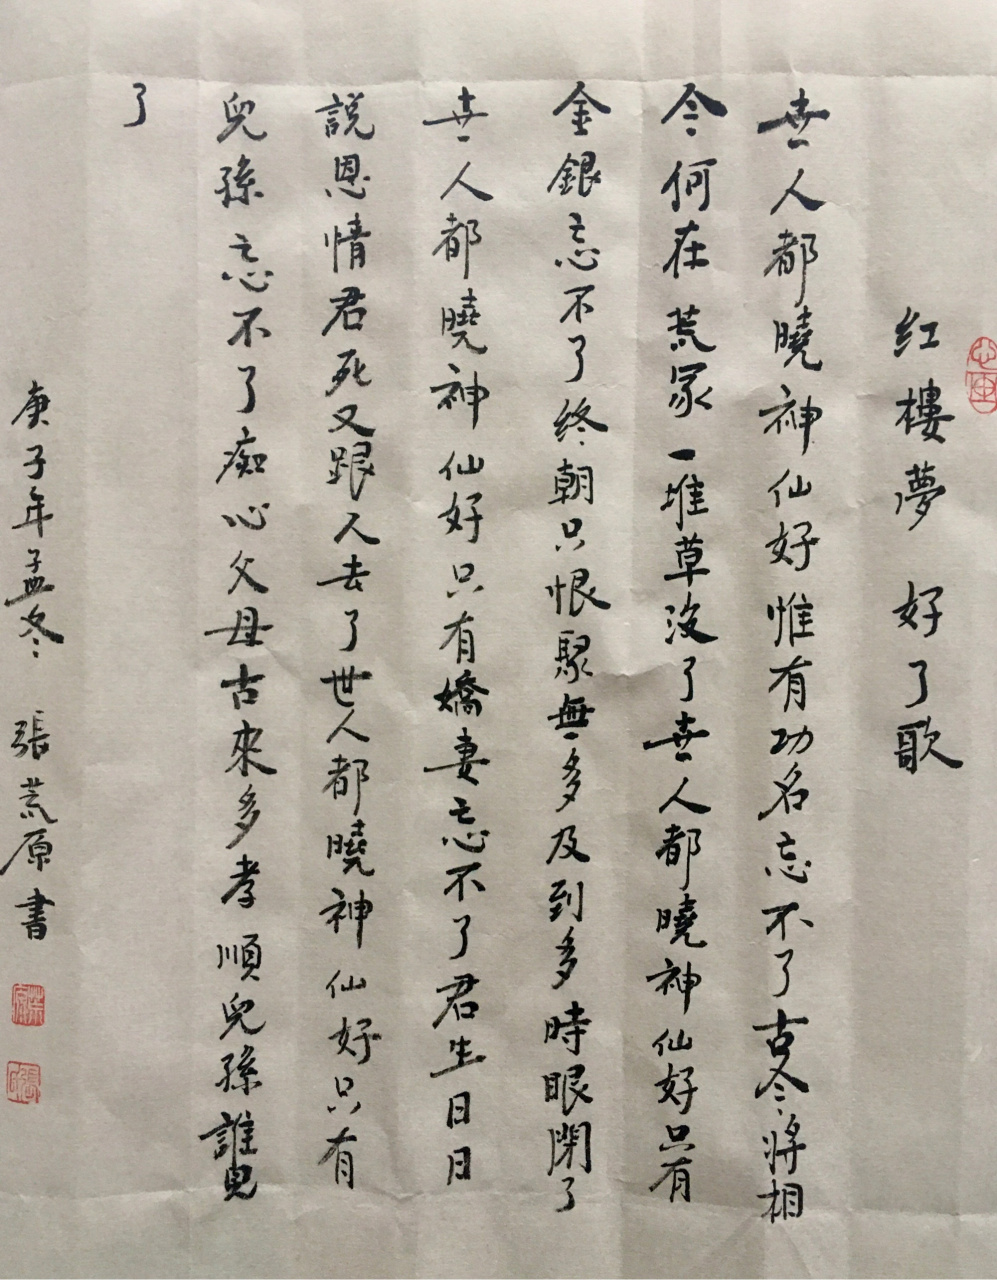 红樓夢 好了歌
世人都曉神仙好惟有功名忘不了古今将相
今何在荒冢一堆草没了世人都曉神仙好只有
金銀忘不了终朝只恨聚無多及到多時眼閉了
世人都曉神仙好只有嬌妻忘不了君生日日
說恩情君死又跟人去了世人都曉神仙好只有
兒孫忘不了痴心父母古來多孝順兒孫誰見
了
庚子年孟冬 張荒原書
荒原